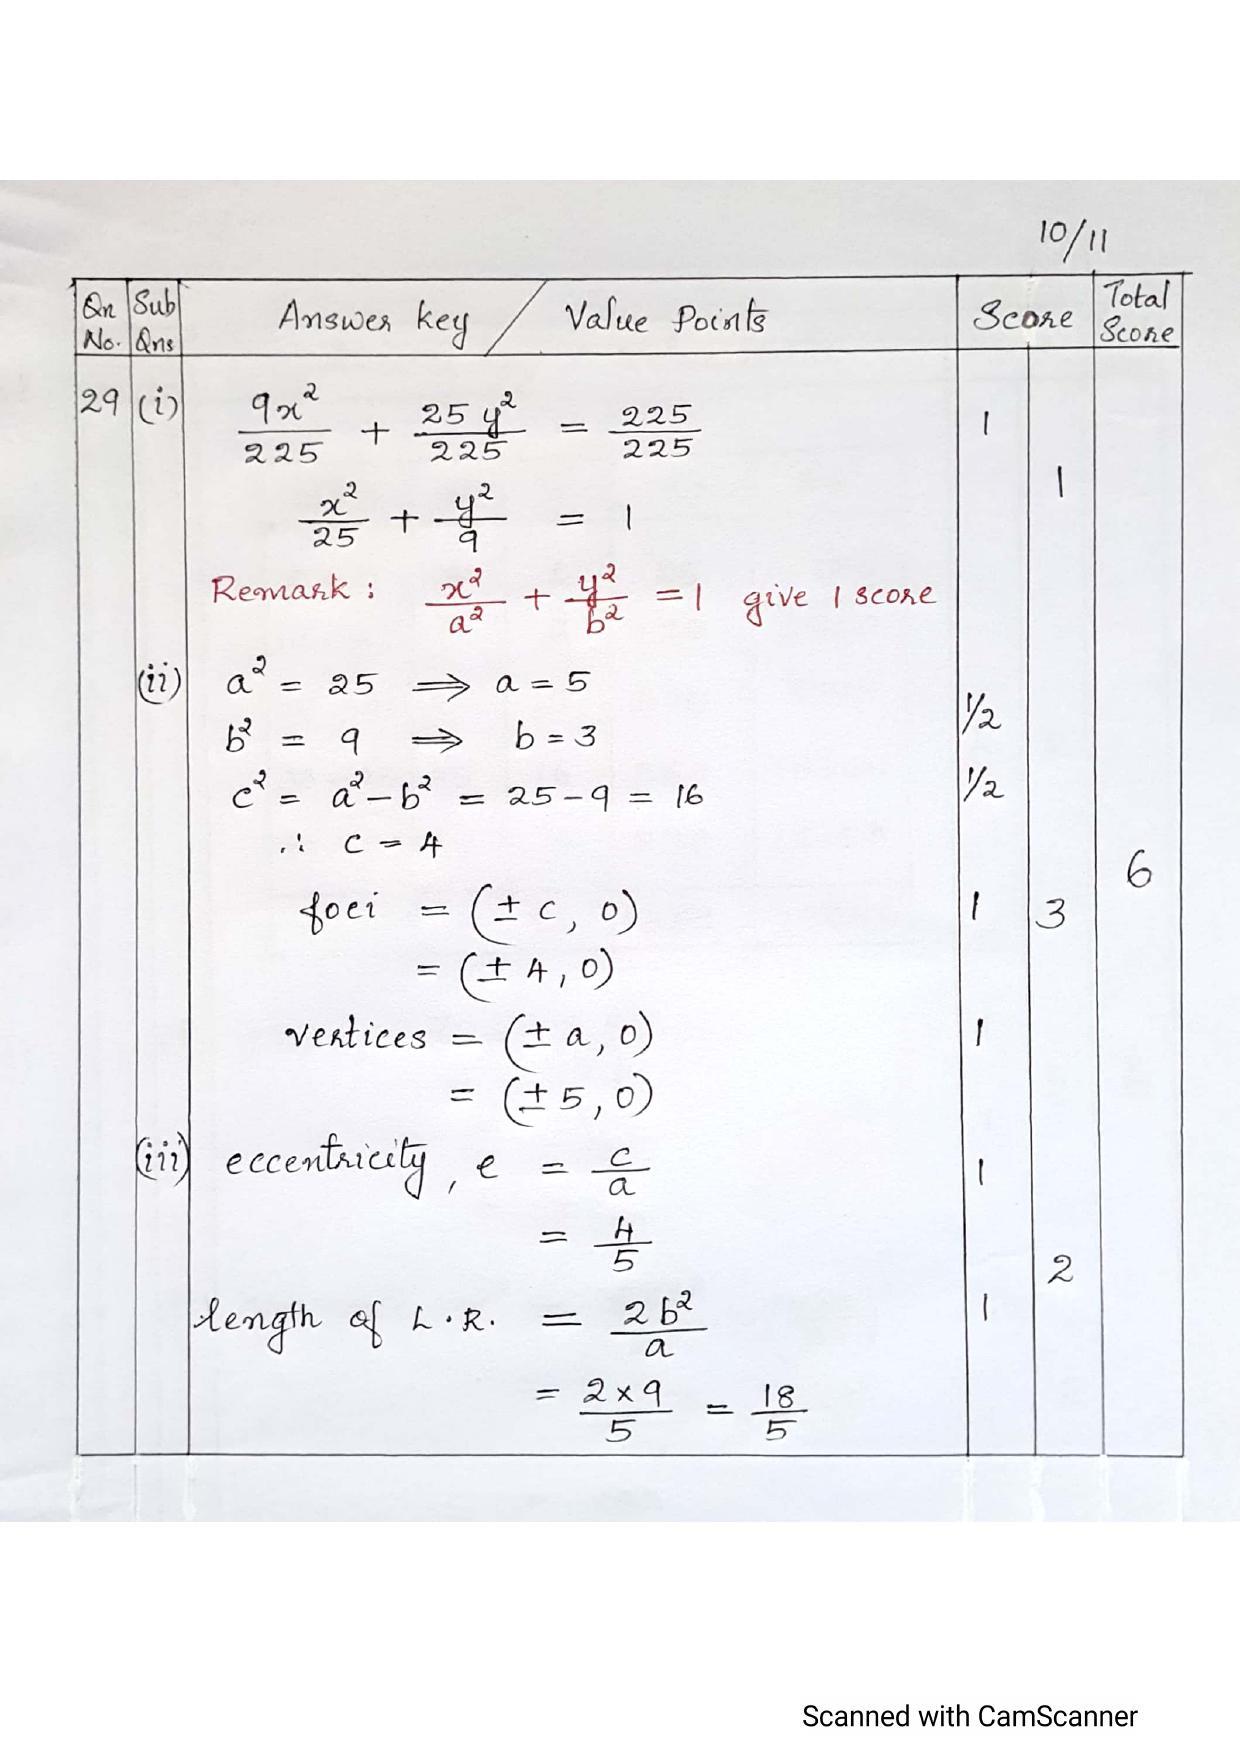 10/11
Qn No. Sub Qns Answer key / Value Points Score Total Score
29 (i) 9x²/225 + 25y²/225 = 225/225 1
x²/25 + y²/9 = 1 1
Remark : x²/a² + y²/b² = 1 give 1 score
(ii) a² = 25 ⟹ a = 5
b² = 9 ⟹ b = 3 1/2
c² = a² – b² = 25 – 9 = 16 1/2
∴ c = 4
6
foci = (± c, 0) 1 3
= (± 4, 0)
vertices = (± a, 0) 1
= (± 5, 0)
(iii) eccentricity, e = c/a 1
= 4/5
2
length of L.R. = 2b²/a 1
= 2×9/5 = 18/5
Scanned with CamScanner